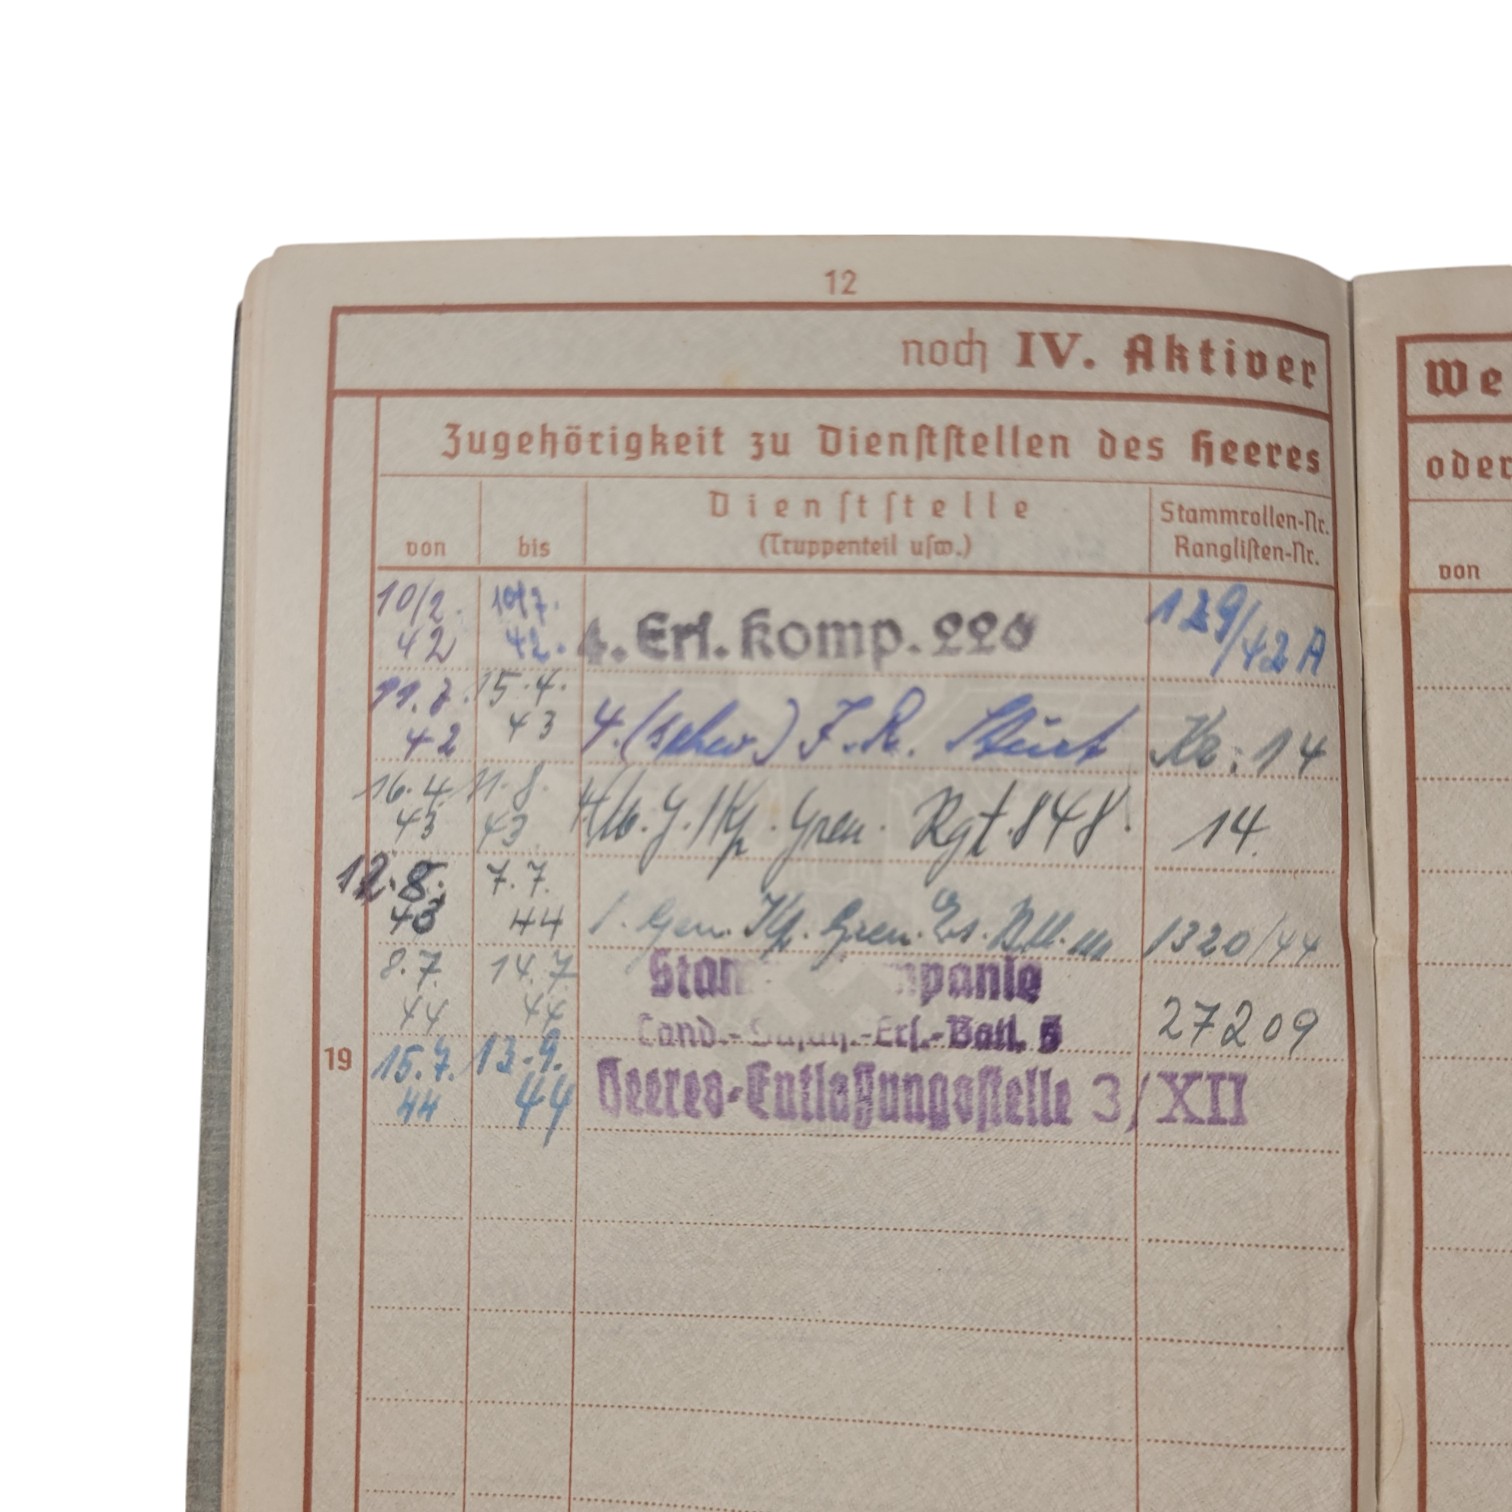 12
noch IV. Aktiver
Zugehörigkeit zu Dienststellen des Heeres
von bis Dienststelle (Truppenteil usw.) Stammrollen-Nr. Ranglisten-Nr.
10/2. 42 10/7. 42. 4. Ers. Komp. 226 129/42 A
11.7. 42 15.4. 43 4. (schw.) I.R. Sturt Kr: 14
16.4. 43 11.8. 43 Gren. Rgt. 848. 14.
12.8. 43 7.7. 44 1. Gen. Kp. Gren. Ers. Btl. 1320/44
8.7. 44 14.7. 44 27209
Land.- -Ers.-Batl. 5
19 15.7. 44 13.9. 44 Heeres-Entlaßungsstelle 3/XII
We
oder
von